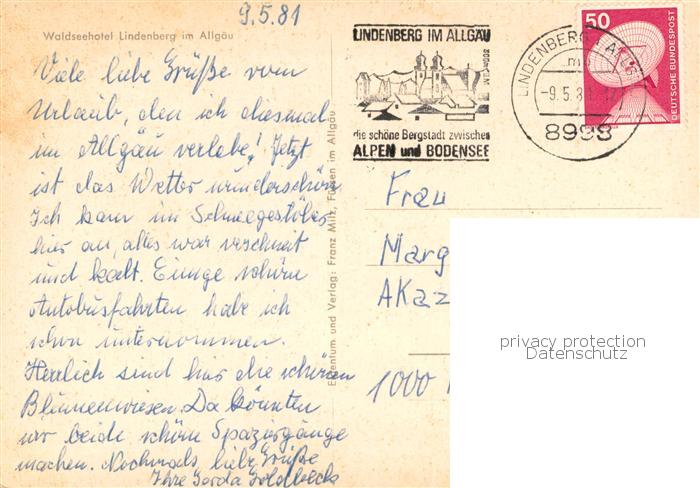 9.5.81
Waldseehotel Lindenberg im Allgäu
Viele liebe Grüße vom
Urlaub, den ich diesmal
im Allgäu verlebe! Jetzt
ist das Wetter wunderschön
Ich kam im Schneegestöber
hier an, alles war verschneit
und kalt. Einige schöne
Autobusfahrten habe ich
schon unternommen.
Herrlich sind hier die schönen
Blumenwiesen. Da könnten
wir beide schöne Spaziergänge
machen. Nochmals liebe Grüße
Ihre Gerda Goldbeck
Eigentum und Verlag: Franz Milz, Füssen im Allgäu
LINDENBERG IM ALLGÄU
800 M
die schöne Bergstadt zwischen
ALPEN und BODENSEE
LINDENBERG, ALLG
-9.5.81
8998
50
DEUTSCHE BUNDESPOST
Frau
Marg
Akaz
1000
privacy protection
Datenschutz